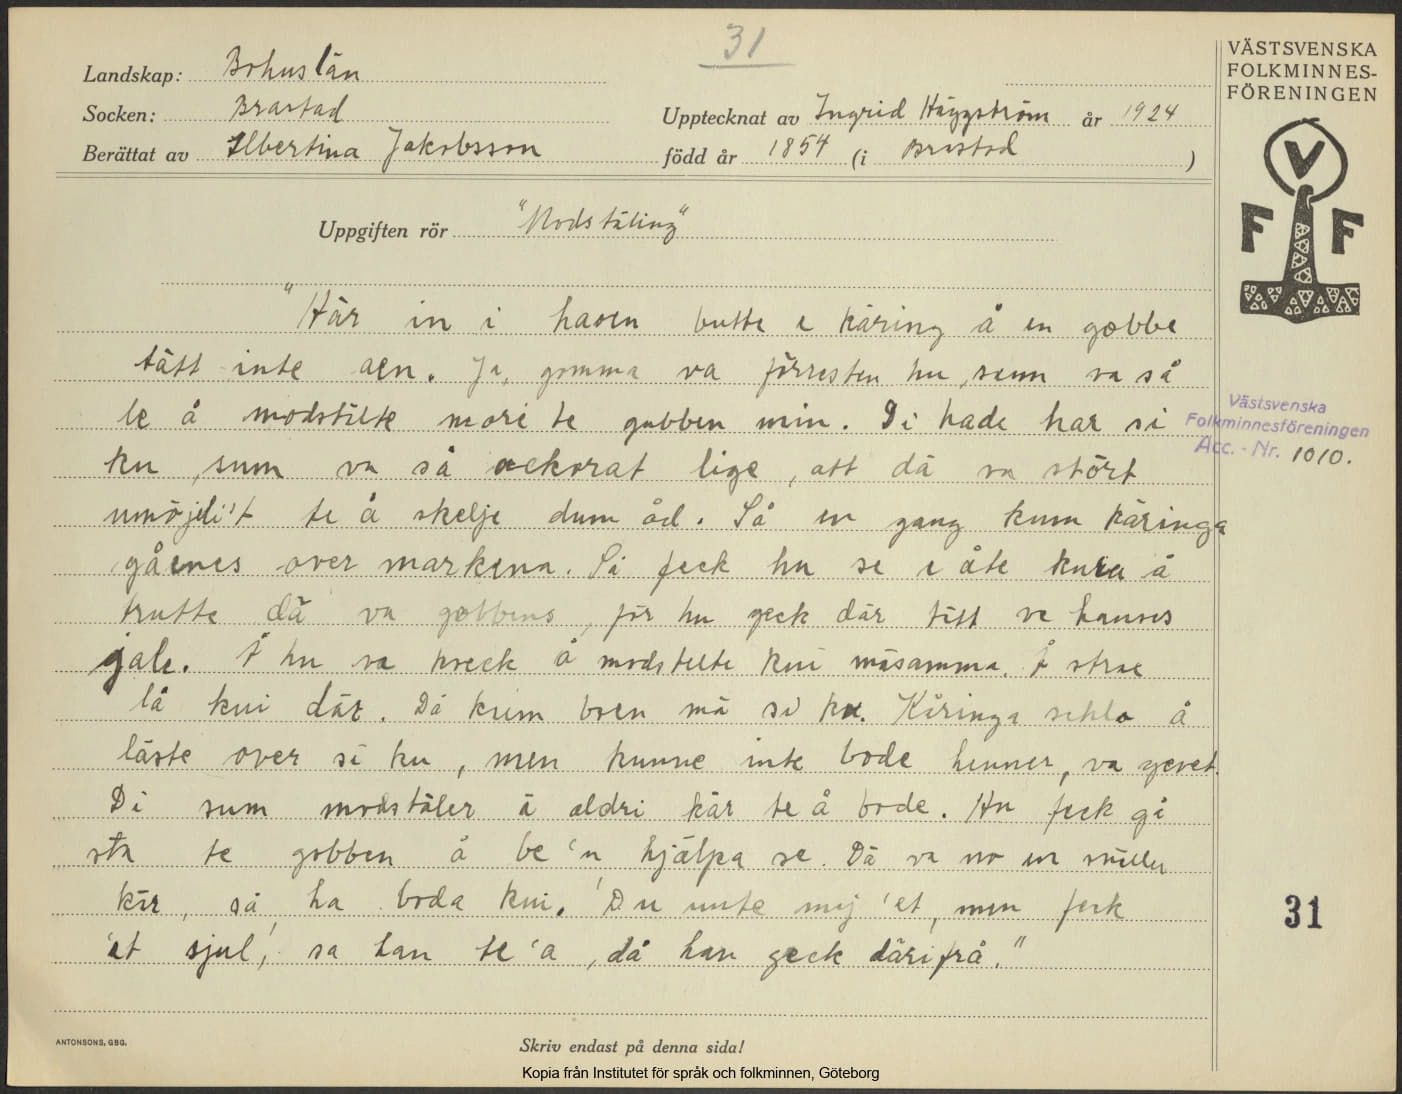 31
Landskap: Bohuslän
Socken: Brastad
Upptecknat av Ingrid Häggström år 1924
Berättat av Albertina Jakobsson född år 1854 (i Brastad)
Uppgiften rör "Modstäling"
"Här in i haven butte e käring å en gobbe
tätt inte aen. Ja, gomma va förresten hu, sum va så
le å modstälte mori te gubben min. Di hade har si
ku, sum va så ackorat lige, att dä va stört
umöjeli't te å skelje dum åd. Så en gang kum käringa
gåenes over markena. Så feck hu se e åte kura å
trutte dä va gobbens, för hu geck där tätt ve hanses
jale. Å hu va kveck å modstelte kui mäsamma. Å strae
lå kui där. Då kum boen mä si ku. Käringa sehla å
läste over si ku, men kunne inte bode henner, va gevet.
Di sum modstäler ä aldri kär te å bode. Hu feck gå
sta te gobben å be 'n hjälpa se. Dä va no en snäller
kär, så ha boda kui. 'Du unte mej 'et, men feck
'et sjul', sa han te 'a, då han geck därifrå."
VÄSTSVENSKA
FOLKMINNES-
FÖRENINGEN
V
F F
Västsvenska
Folkminnesföreningen
Acc. - Nr. 1010.
31
ANTONSONS, GBG.
Skriv endast på denna sida!
Kopia från Institutet för språk och folkminnen, Göteborg